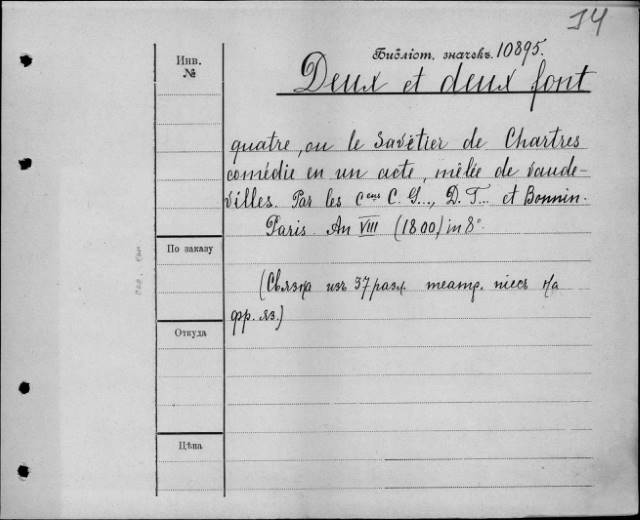 14
Библіот. значекъ. 10895.
Инв.
№
Deux et deux font
quatre, ou le Savetier de Chartres
comédie en un acte, mêlée de vaude-
villes. Par les Cens C. G..., D. T... et Bonnin.
Paris. An VIII (1800) in 8°
По заказу
(Связка изъ 37 разл. театр. пиесъ на
фр. яз.)
Откуда
Цѣна